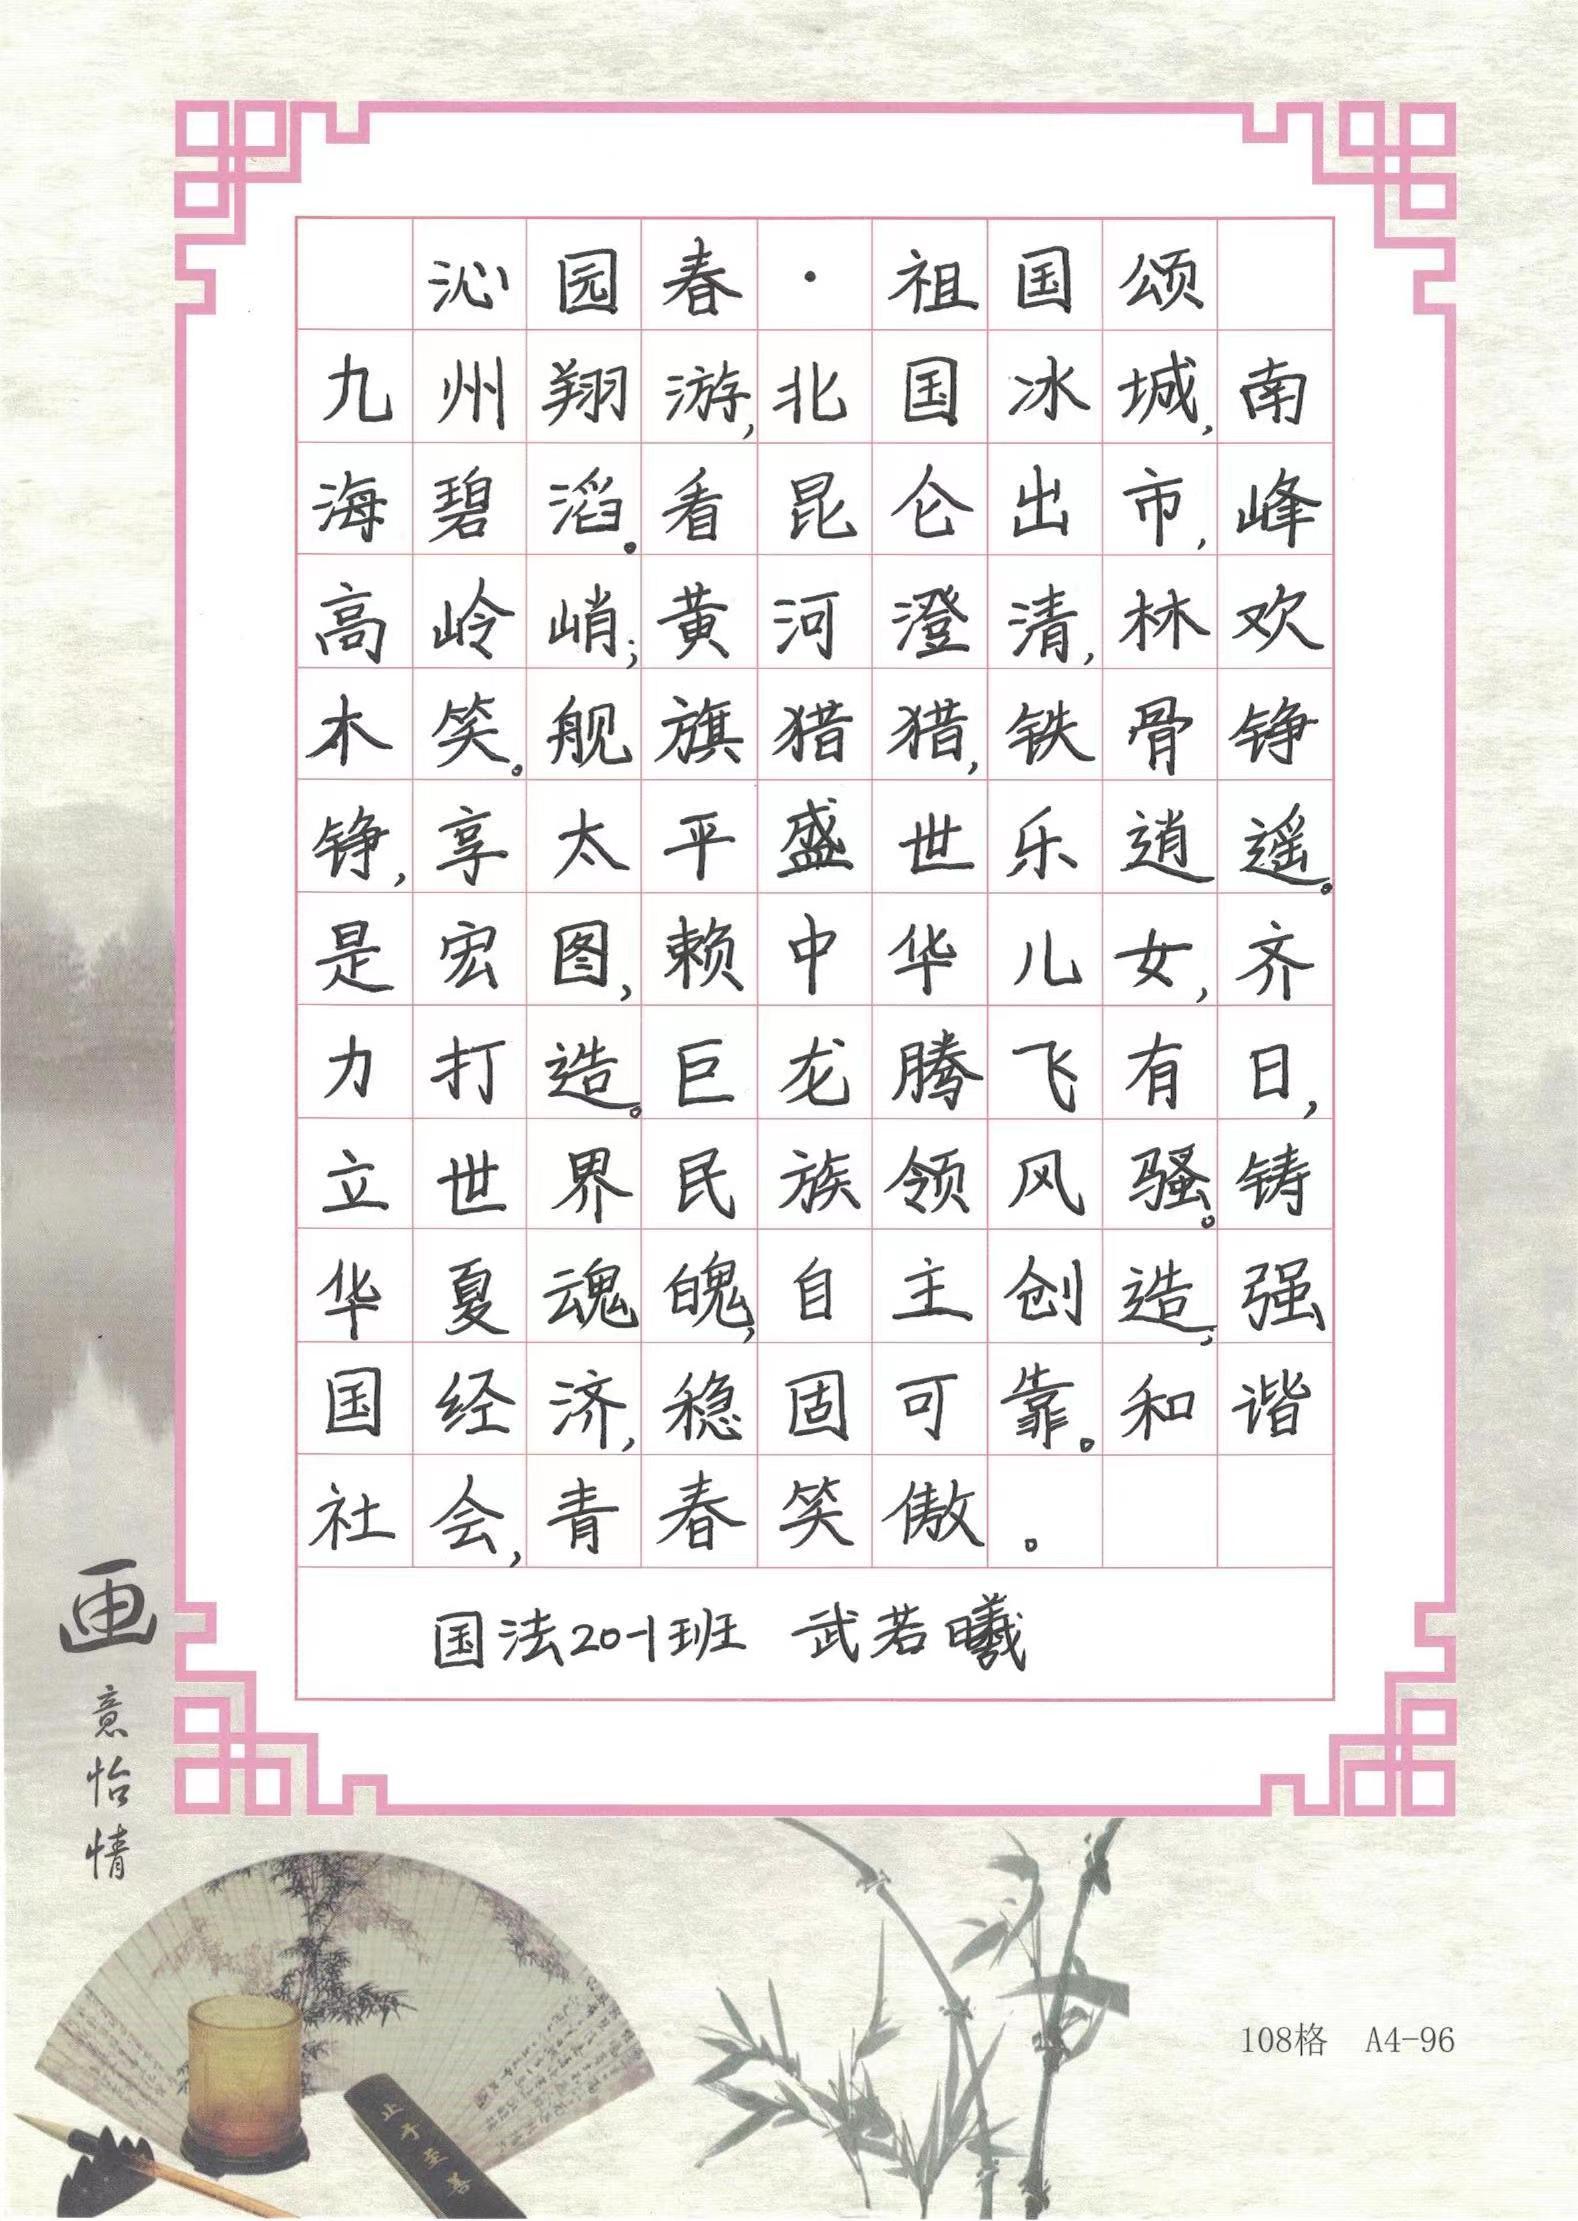 沁园春·祖国颂
九州翔游,北国冰城,南
海碧滔。看昆仑出市,峰
高岭峭;黄河澄清,林欢
木笑。舰旗猎猎,铁骨铮
铮,享太平盛世乐逍遥。
是宏图,赖中华儿女,齐
力打造。巨龙腾飞有日,
立世界民族领风骚。铸
华夏魂魄,自主创造;强
国经济,稳固可靠。和谐
社会,青春笑傲。
国法20-1班 武若曦
画意怡情
止于至善
108格 A4-96